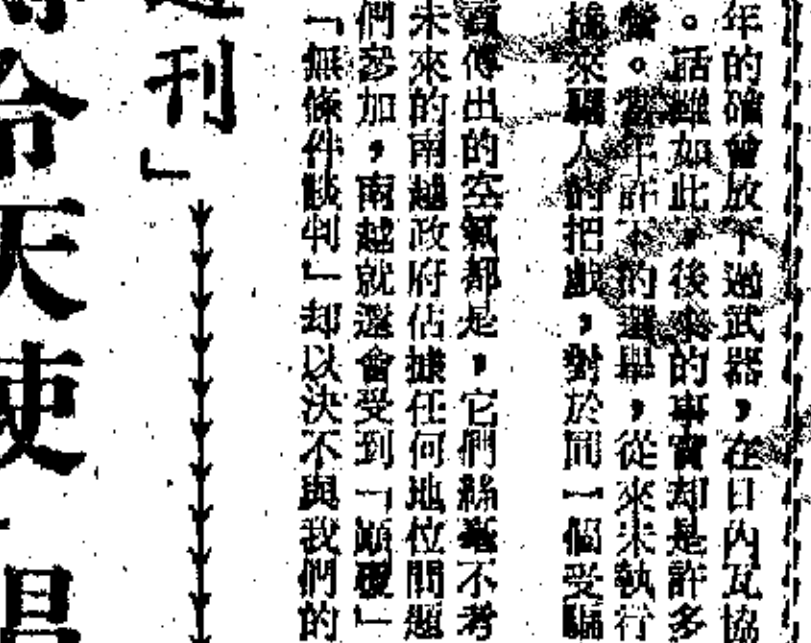 年的確曾放下過武器，在日內瓦協
。話雖如此，後來的事實却是許多
。當年許下的選舉，從來未執行
來騙人的把戲，對於同一個受騙
傳出的空氣都是，它們絲毫不考
未來的南越政府佔據任何地位問題
們參加，南越就還會受到「顛覆」
「無條件談判」却以決不與我們的
刊」
天使